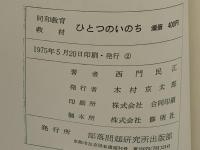 同和教育
教材 ひとつのいのち 価 400円
1975年5月20日印刷・発行 ②
著者 西門民江
発行者 木村京太郎
印刷所 株式会社 合同印刷
製本所 株式会社 藤沢社
発行所 部落問題研究所出版部